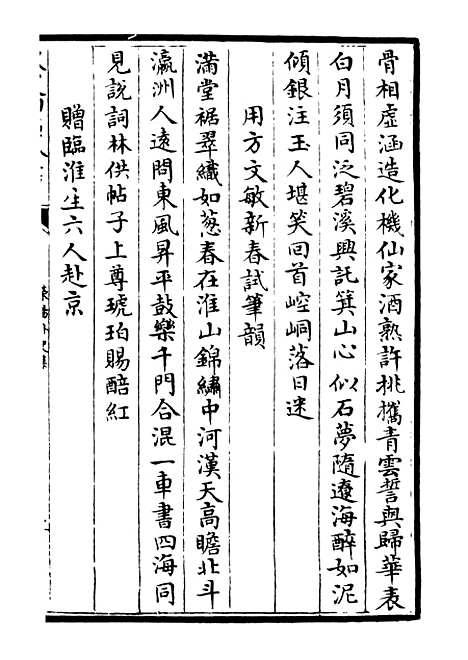 骨相虛涵造化機仙家酒熟許挑攜青雲誓與歸華表
白月須同泛碧溪興託箕山心似石夢隨遼海醉如泥
傾銀注玉人堪笑回首崆峒落日迷
用方文敏新春試筆韻
滿堂裾翠纖如蔥春在淮山錦繡中河漢天高瞻北斗
瀛洲人遠問東風昇平鼓樂千門合混一車書四海同
見說詞林供帖子上尊琥珀賜醅紅
贈臨淮生六人赴京